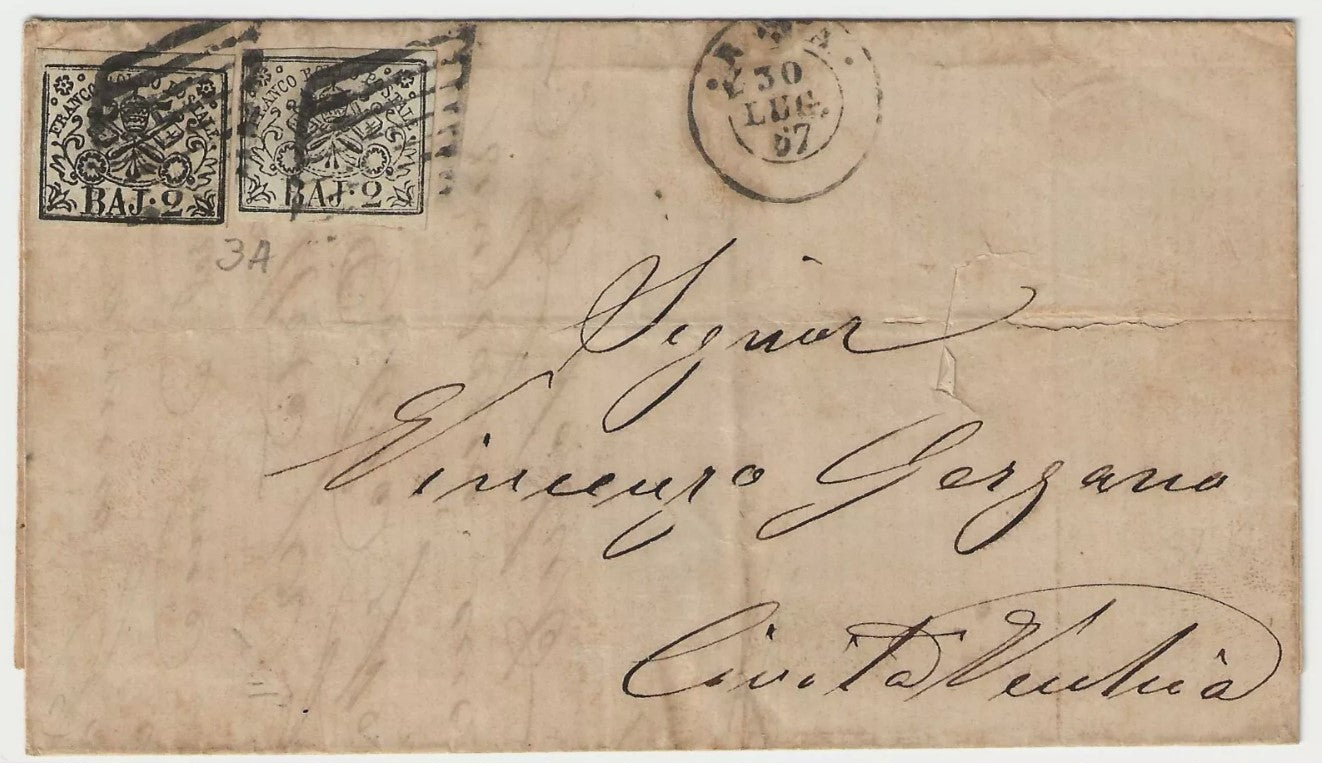 FRANCO BOLLO POSTALE
BAJ. 2
FRANCO BOLLO POSTALE
BAJ. 2
ROMA
30
LUG.
67
3A
Signor
Vincenzo Gorgano
Civita Vecchia